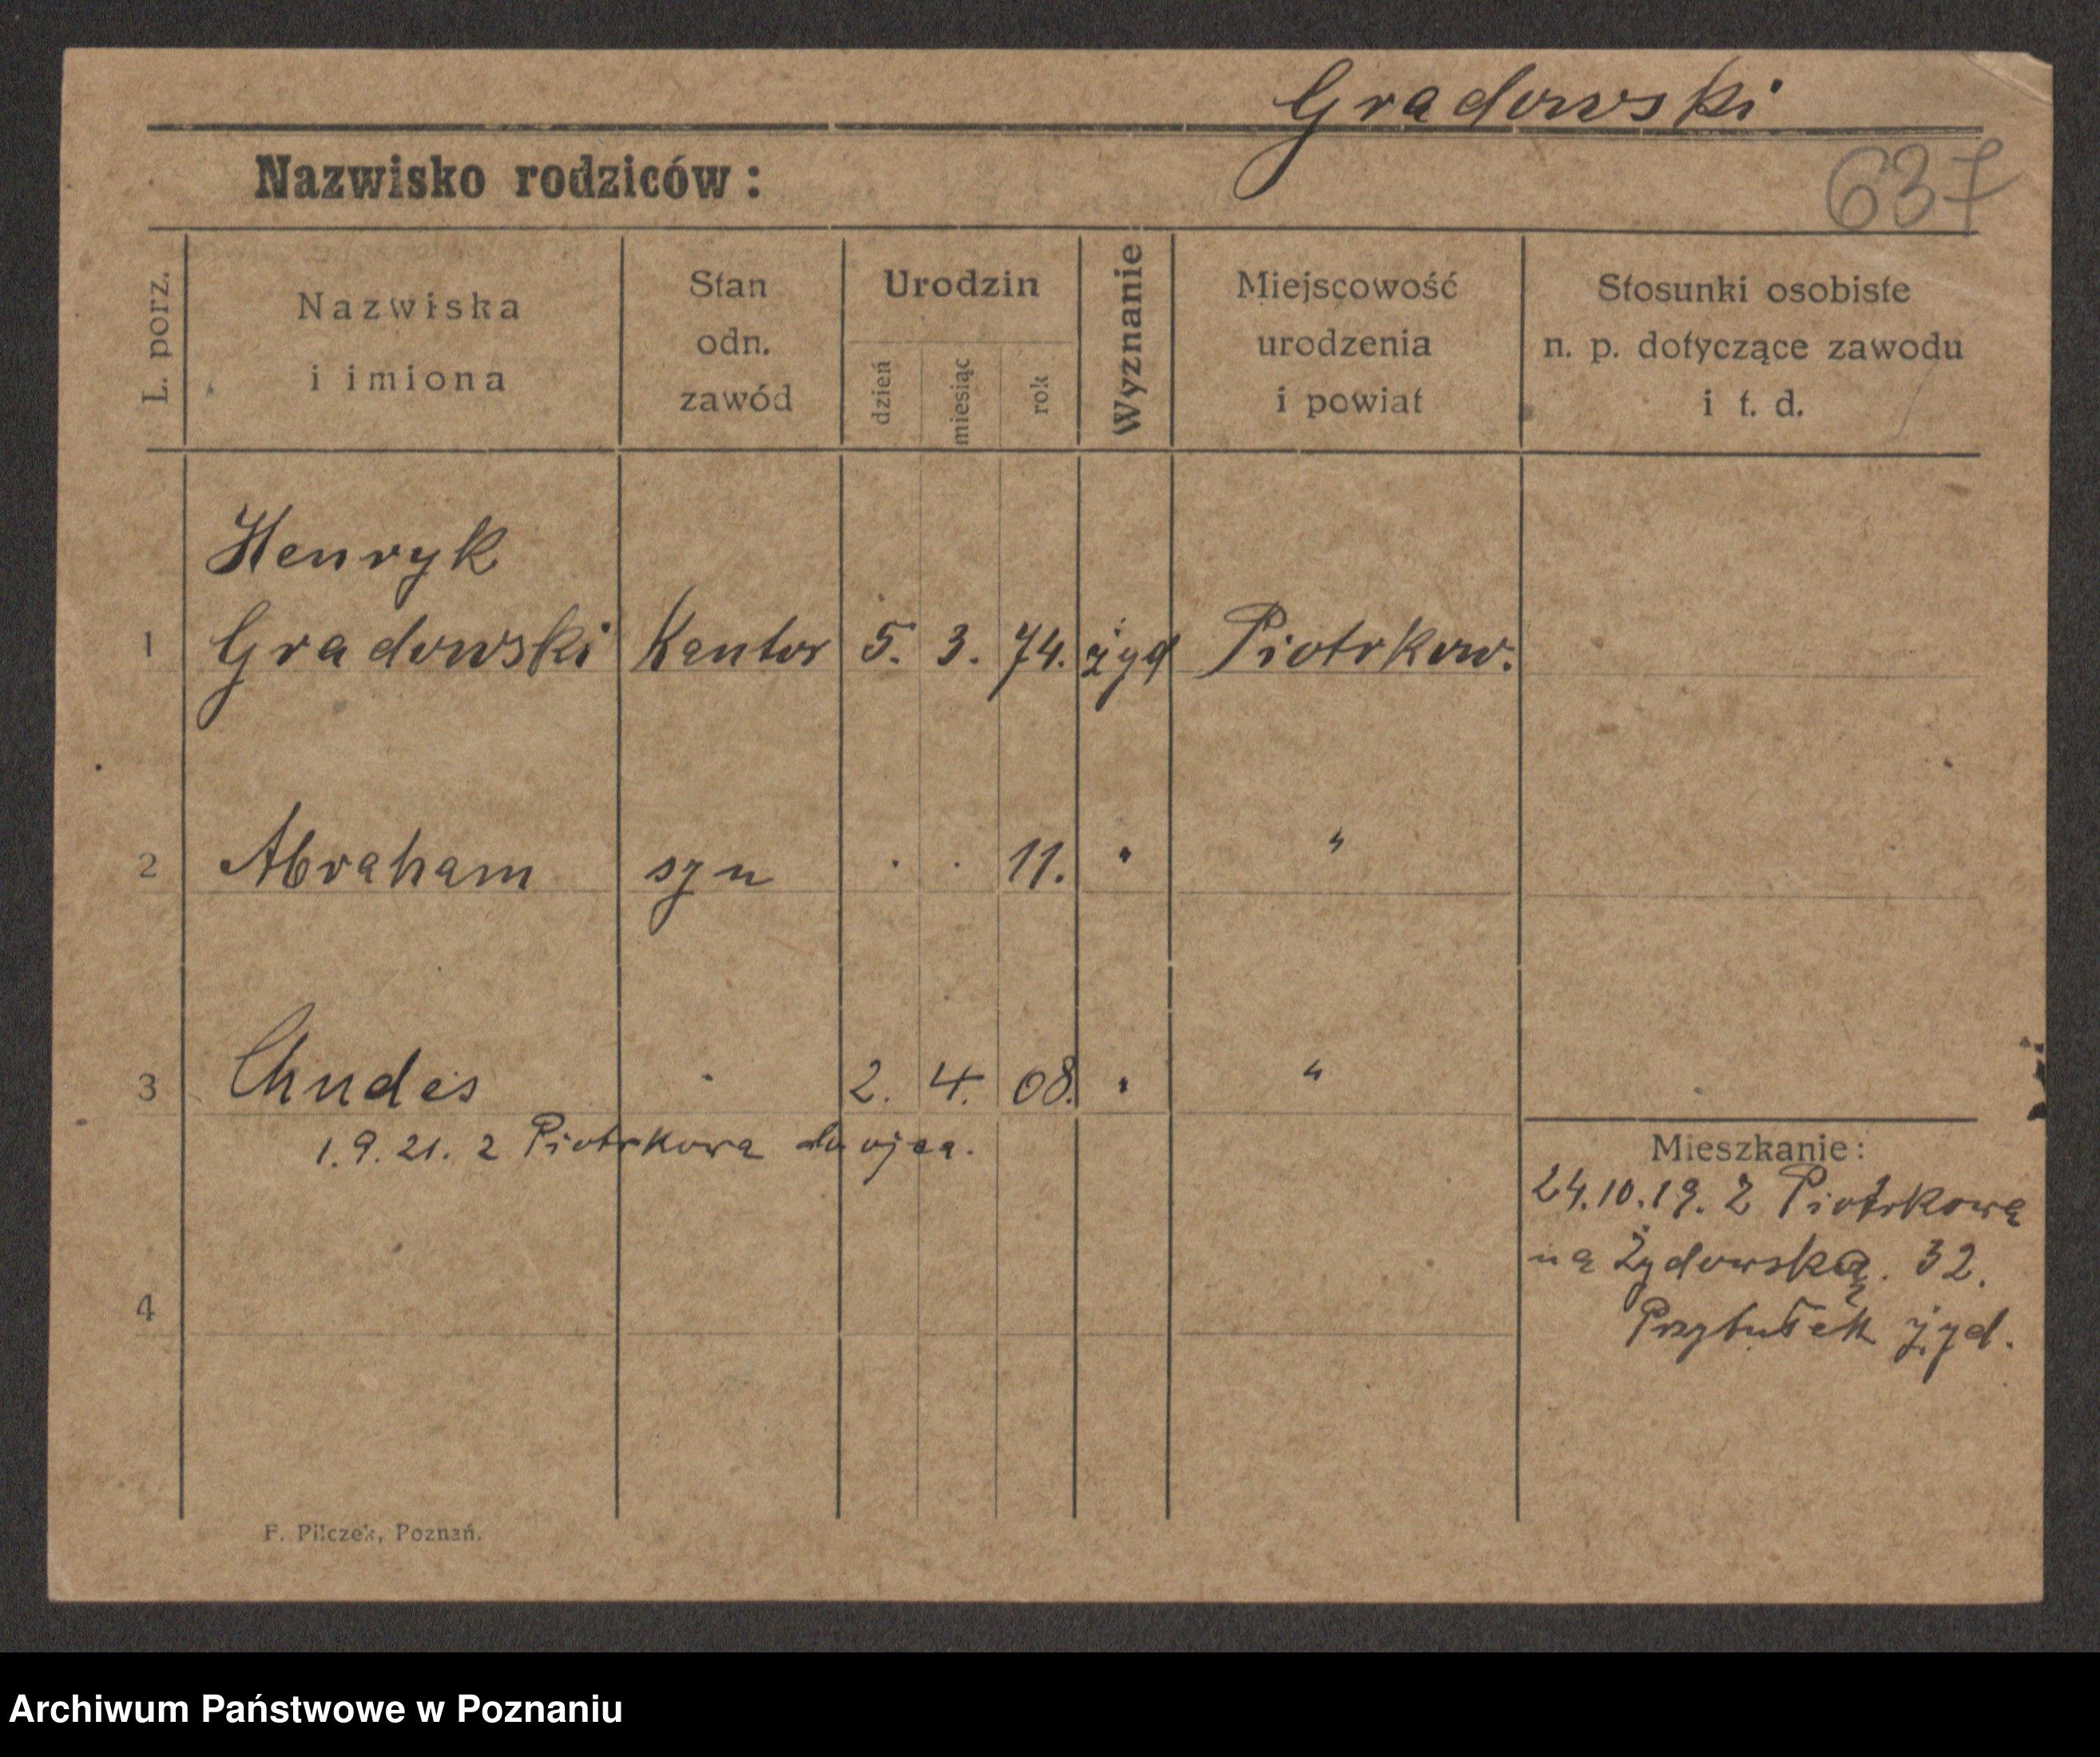 Gradowski
Nazwisko rodziców :
637
L. porz.
Nazwiska
i imiona
Stan
odn.
zawód
Urodzin
dzień
miesiąc
rok
Wyznanie
Miejscowość
urodzenia
i powiat
Stosunki osobiste
n. p. dotyczące zawodu
i t. d.
Henryk
1 Gradowski Kantor 5. 3. 74. żyd Piotrkow.
2 Abraham syn . . 11. " "
3 Chudes " 2. 4. 08. " "
1.9.21. z Piotrkowa do ojca.
Mieszkanie :
24.10.19. z Piotrkowa
na Żydowską. 32.
Przytułek żyd.
4
F. Pilczek, Poznań.
Archiwum Państwowe w Poznaniu